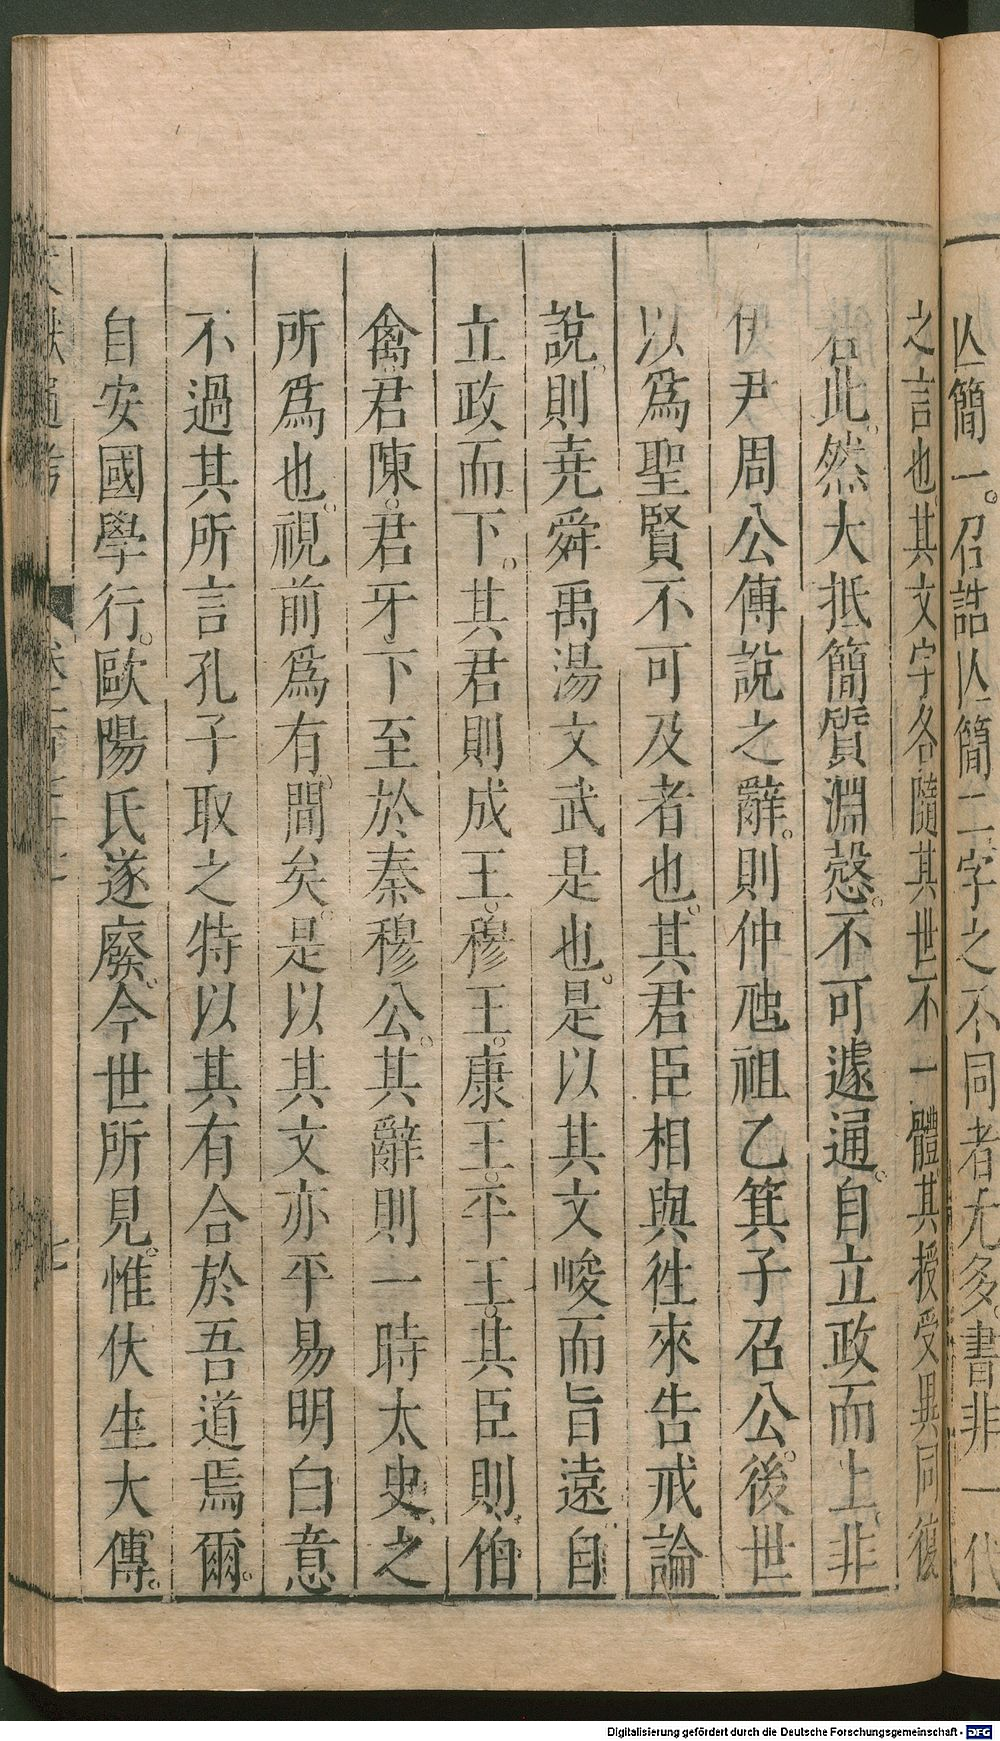 亾簡一。召誥亾簡二字之不同者尤多。書非一代
之言也其文字各隨其世不一體其授受異同復
若此。然大抵簡質淵慤。不可遽通。自立政而上。非
伊尹周公傳說之辭。則仲虺祖乙箕子召公。後世
以爲聖賢不可及者也。其君臣相與徃來告戒論
說。則堯舜禹湯文武是也。是以其文峻而旨遠自
立政而下。其君則成王。穆王。康王。平王。其臣則。伯
禽。君陳。君牙。下至於秦穆公。其辭則一時太史。之
所爲也。視前爲有間矣。是以其文亦平易明白意
不過其所言孔子取之特以其有合於吾道焉爾。
自安國學行。歐陽氏遂廢。今世所見。惟伏生大傳。
Digitalisierung gefördert durch die Deutsche Forschungsgemeinschaft - DFG